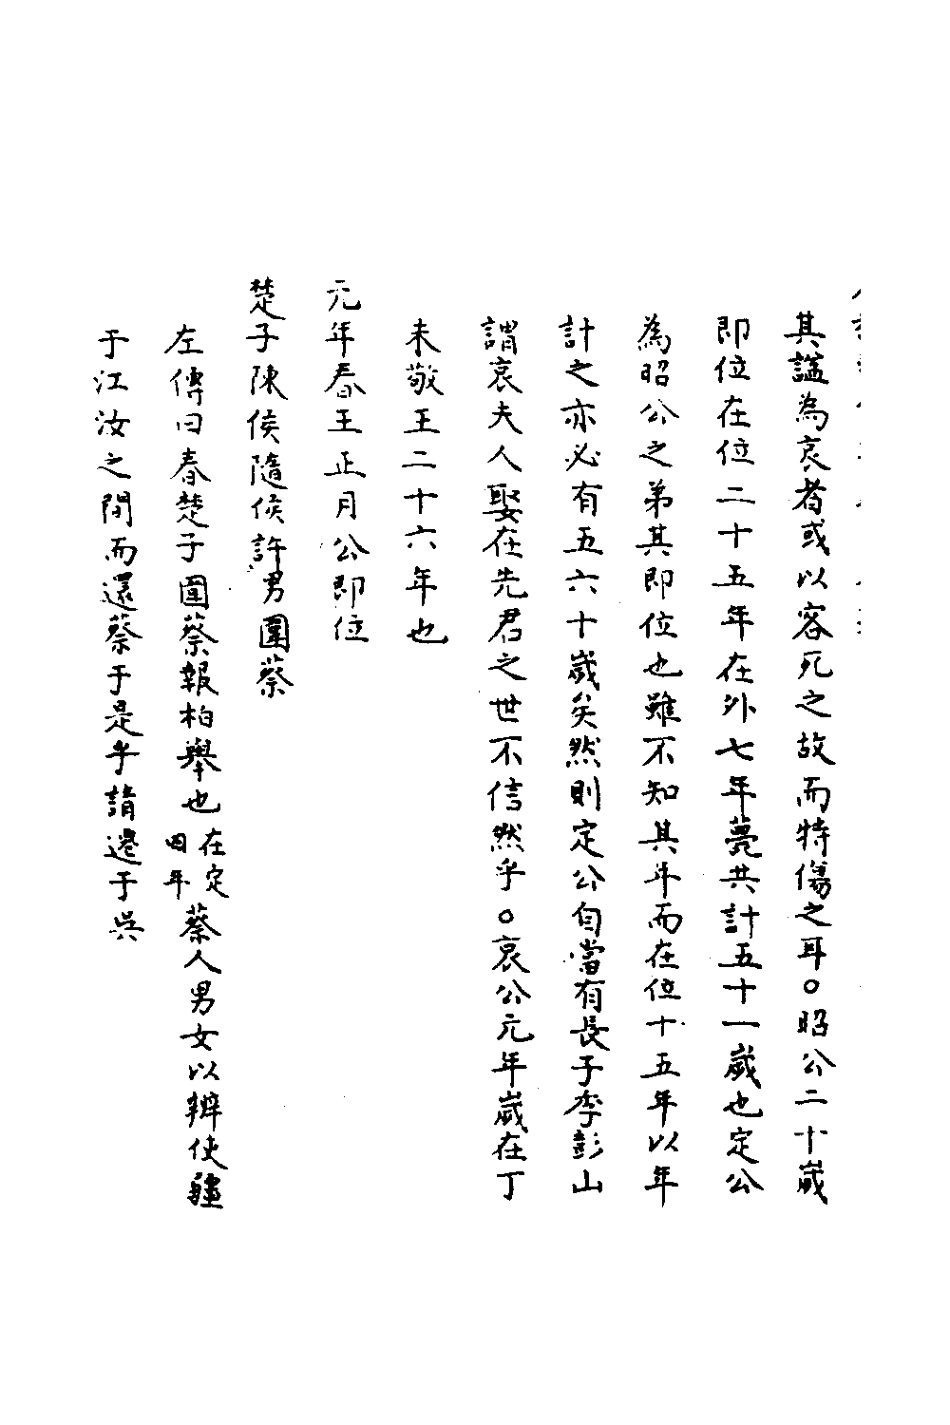 其諡為哀者或以客死之故而特傷之耳○昭公二十歲
即位在位二十五年在外七年薨共計五十一歲也定公
為昭公之弟其即位也雖不知其年而在位十五年以年
計之亦必有五六十歲矣然則定公自當有長子李彭山
謂哀夫人娶在先君之世不信然乎○哀公元年歲在丁
未敬王二十六年也
元年春王正月公即位
楚子陳侯隨侯許男圍蔡
左傳曰春楚子圍蔡報柏舉也在定四年蔡人男女以辨使疆
于江汝之間而還蔡于是乎請遷于吳